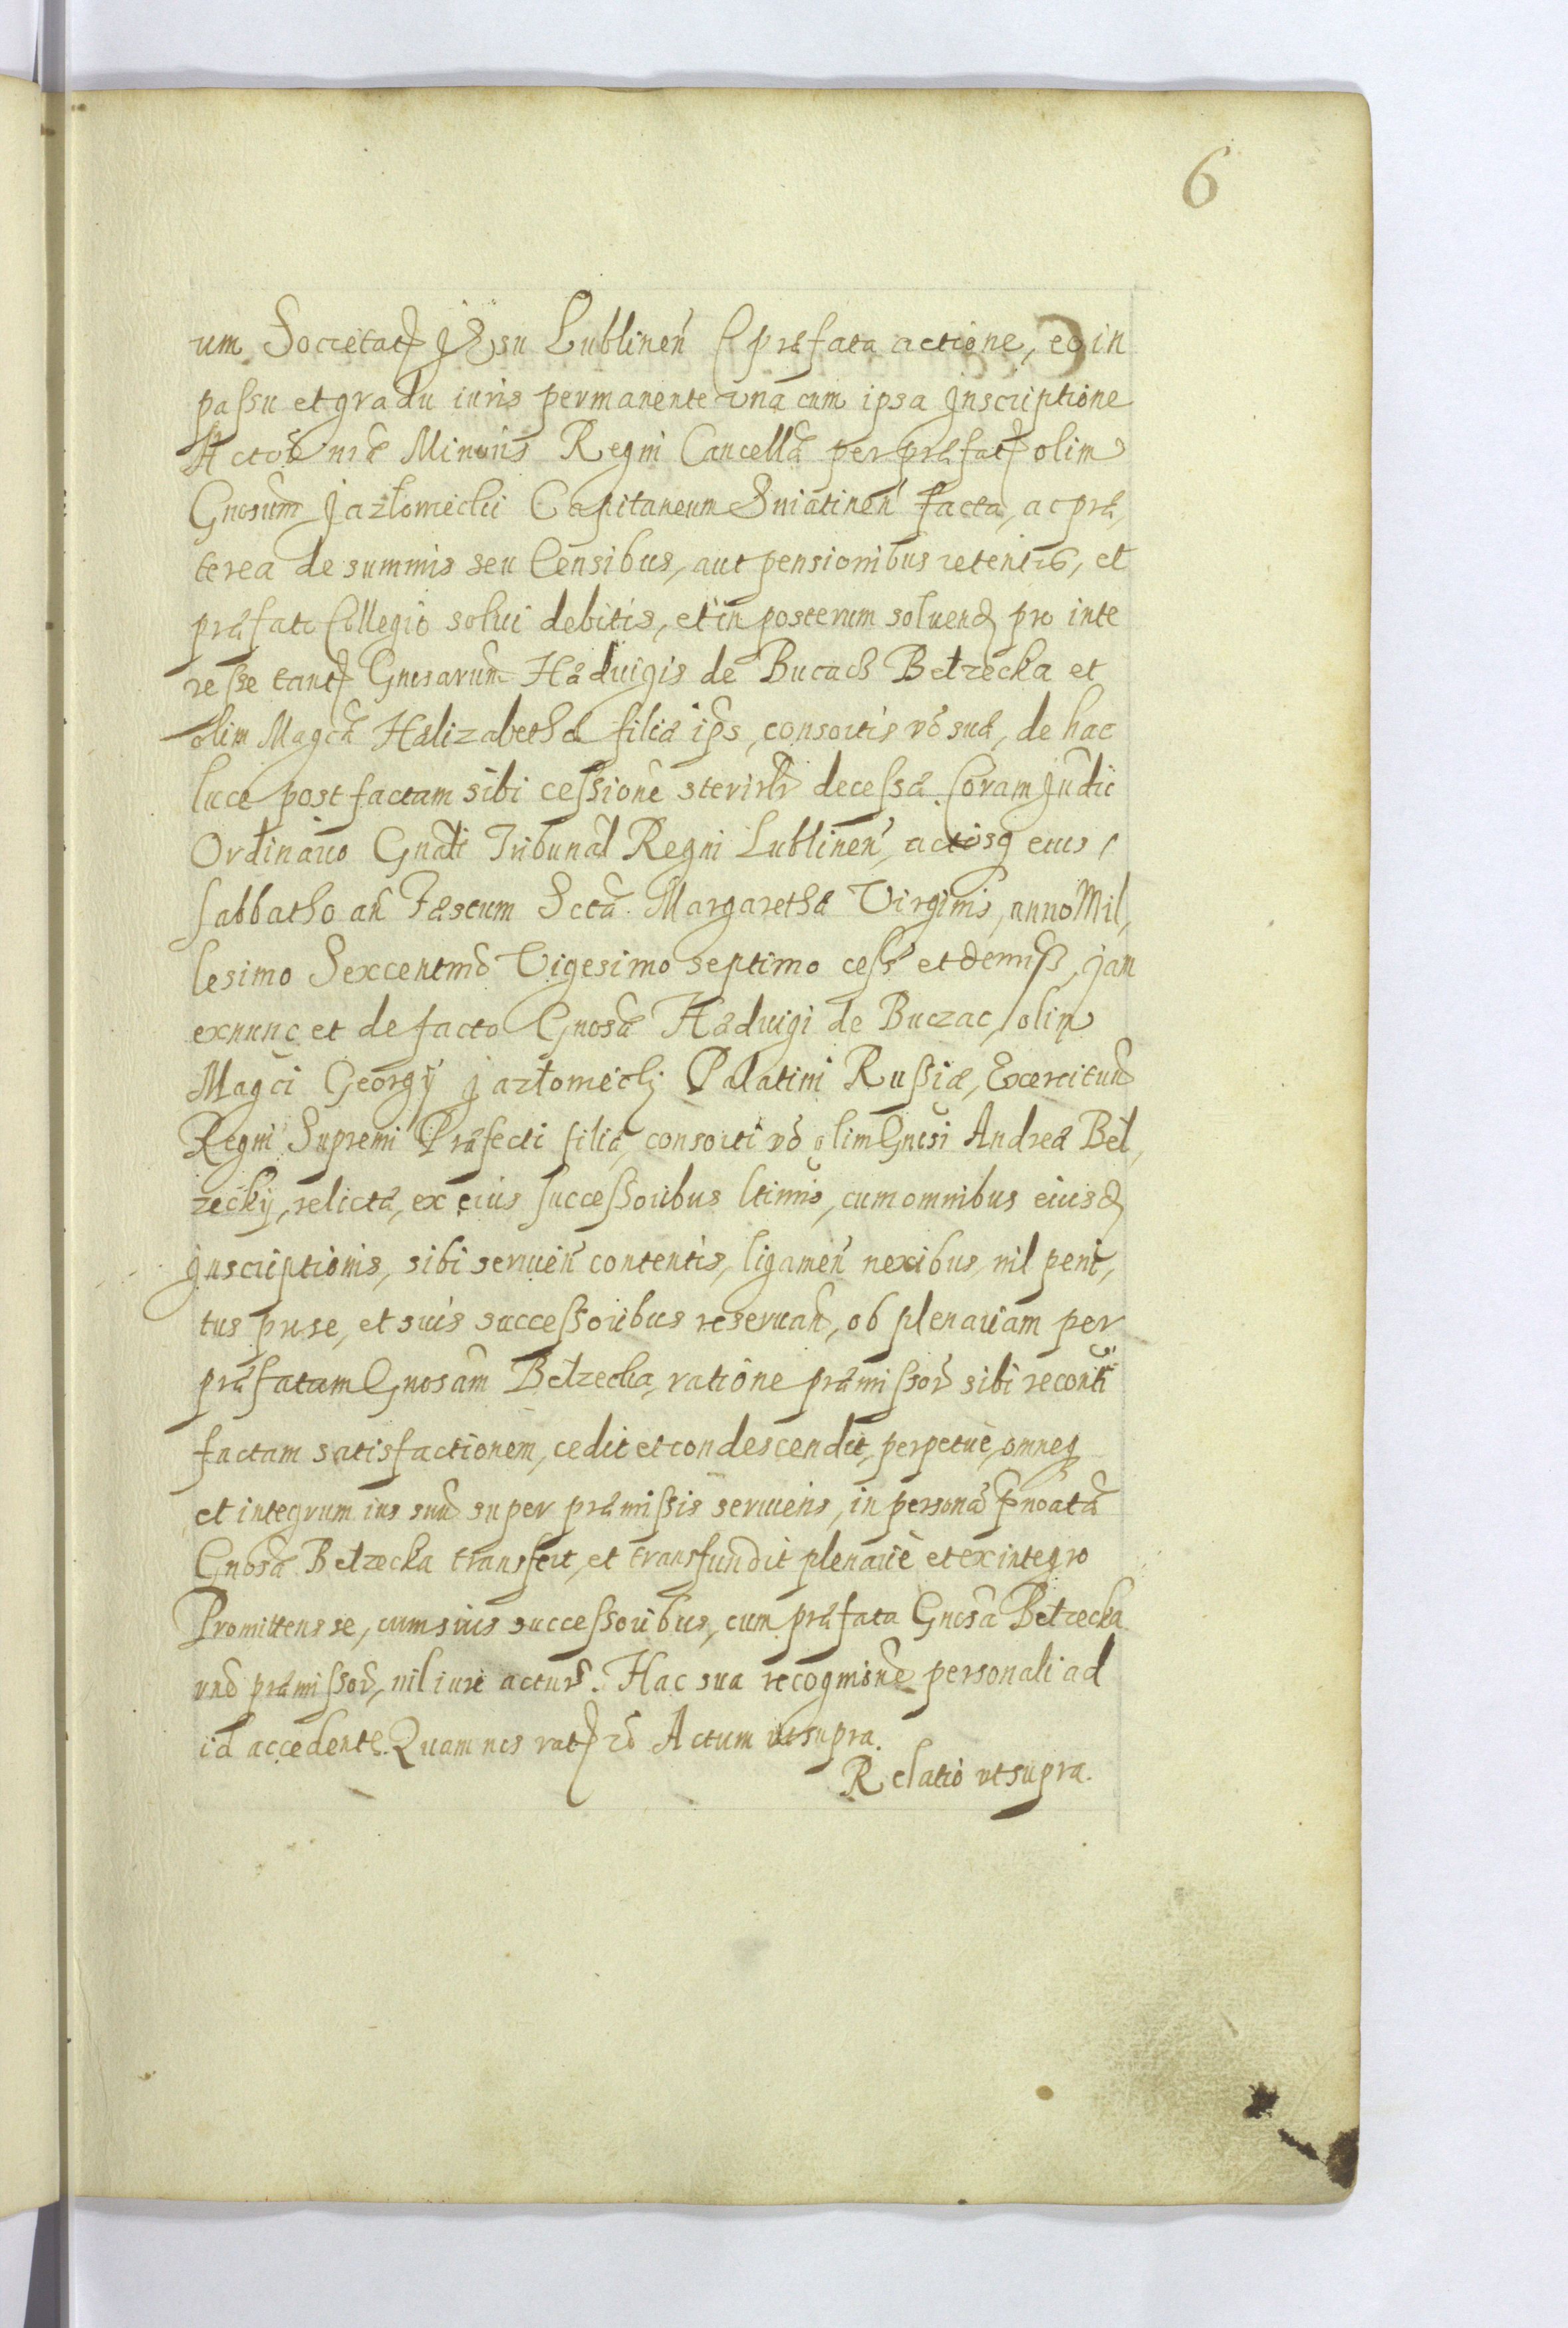 6
um Societatꝭ Jesu Lublinen̄ præfata actione, eo in
passu et gradu iuris permanente vna cum ipsa Jnscriptione
Actoꝝ nr̄æ Minoris Regni Cancellæ per præfatꝭ olim
Gnosum Jazłowiecki Capitaneum Sniatinen̄ facta, ac præ,
terea de summis seu Censibus, aut pensionibus retentis, et
præfato Collegio solui debitis, et in posterum soluendꝭ pro inte
resse tantꝭ Gnosarum Hæduigis de Bucacz Bełzecka et
olim Magcæ Hælizabethæ filiæ ips, consortis vō suæ, de hac
luce post factam sibi cessionē sterilr̄ decessæ. Coram Judic
Ordinario Gnāli Tribunal Regni Lublinen̄, actisq eius
Sabbatho an̄ Fæstum Sctæ Margarethæ Virginis, anno Mil,
lesimo Sexcentmō Vigesimo septimo cess̄ et demiss, jam
exnunc et de facto Gnosæ Hæduigi de Buczac, olim
Magci Georgij Jazłowieckj Palatini Russiæ, Exercituū
Regni Supremi Præfecti filiæ, consorti vō olim Gnosi Andreæ Beł,
zeckij, relictæ, ex eius successoribus ltimis, cum omnibus eiusdꝭ
Jnscriptionis, sibi seruien̄ contentis, ligamen̄ nexibus, nil peni,
tus p̱ se, et suis successoribus reseruan̄, ob plenariam per
præfatam Gnosam Bełzecka, ratione præmissoꝝ sibi reconti
factam satisfactionem, cedit et condescendit, perpetuè, omneq
et integrum ius suū super præmissis seruiens, in personā p̄noatæ
Gnosæ Bełzecka transfert, et transfundit plenariè et ex integro
Promittens se, cum suis successoribus, cum præfata Gnosa Bełzecka
rnō præmissoꝝ, nil iure acturꝭ. Hac sua recognione personali ad
id accedente. Quam nos ratꝭ rō Actum vt supra.
Relatio vt supra.